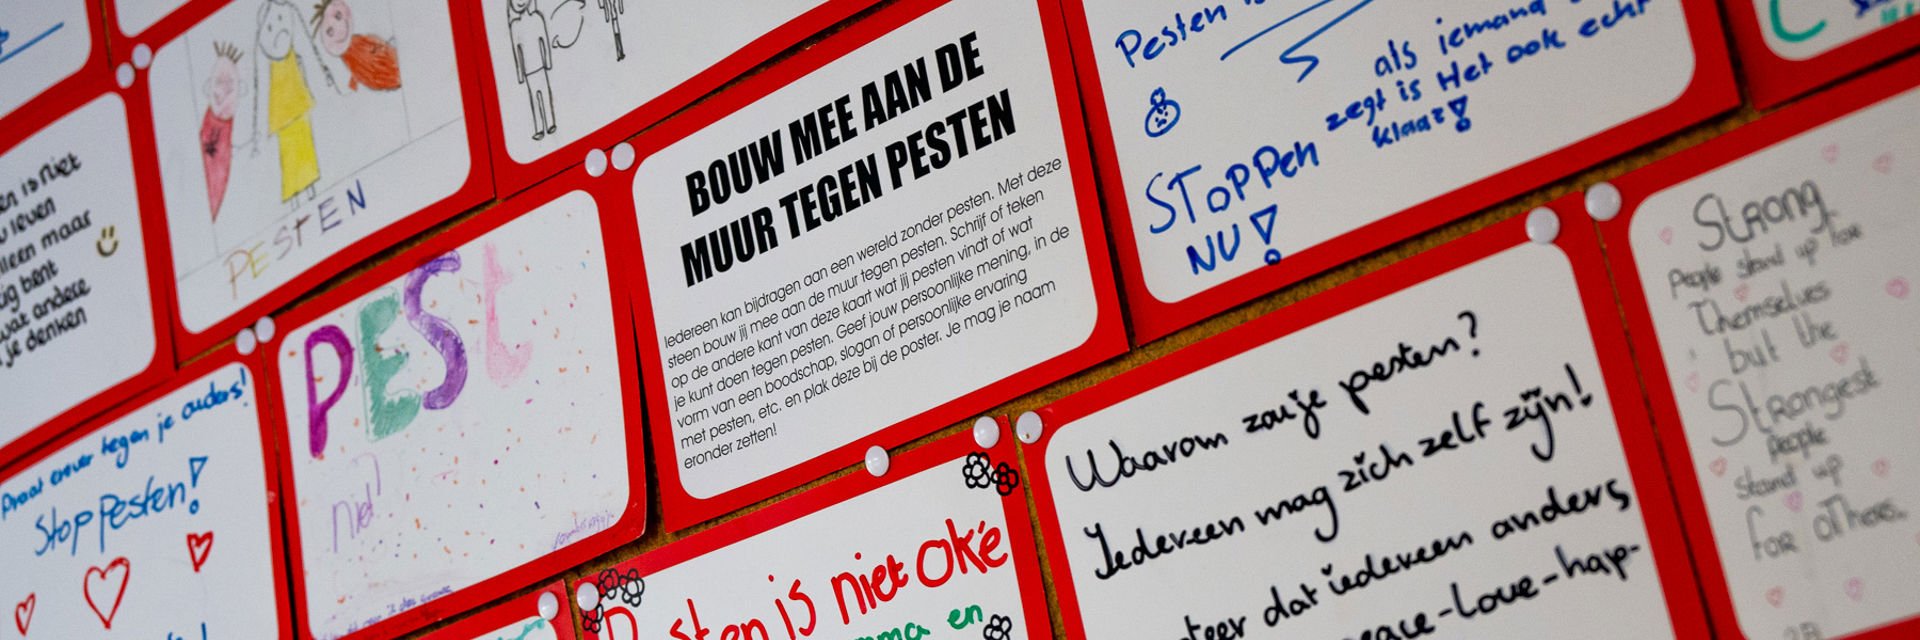 en is niet
leven
lleen maar
tig bent
wat andere
je denken
PESTEN
Praat erover tegen je ouders!
Stop Pesten!
PESt
niet!
BOUW MEE AAN DE
MUUR TEGEN PESTEN
Iedereen kan bijdragen aan een wereld zonder pesten. Met deze
steen bouw jij mee aan de muur tegen pesten. Schrijf of teken
op de andere kant van deze kaart wat jij pesten vindt of wat
je kunt doen tegen pesten. Geef jouw persoonlijke mening, in de
vorm van een boodschap, slogan of persoonlijke ervaring
met pesten, etc. en plak deze bij de poster. Je mag je naam
eronder zetten!
Pesten is niet oké
en
Pesten
als iemand
STOPPEN zegt is Het ook echt
NU! klaar!
Waarom zou je pesten?
Iedereen mag zich zelf zijn!
dat iedereen anders
peace-love-hap-
Strong
People stand up for
Themselves
but the
Strongest
People
stand up
for others.